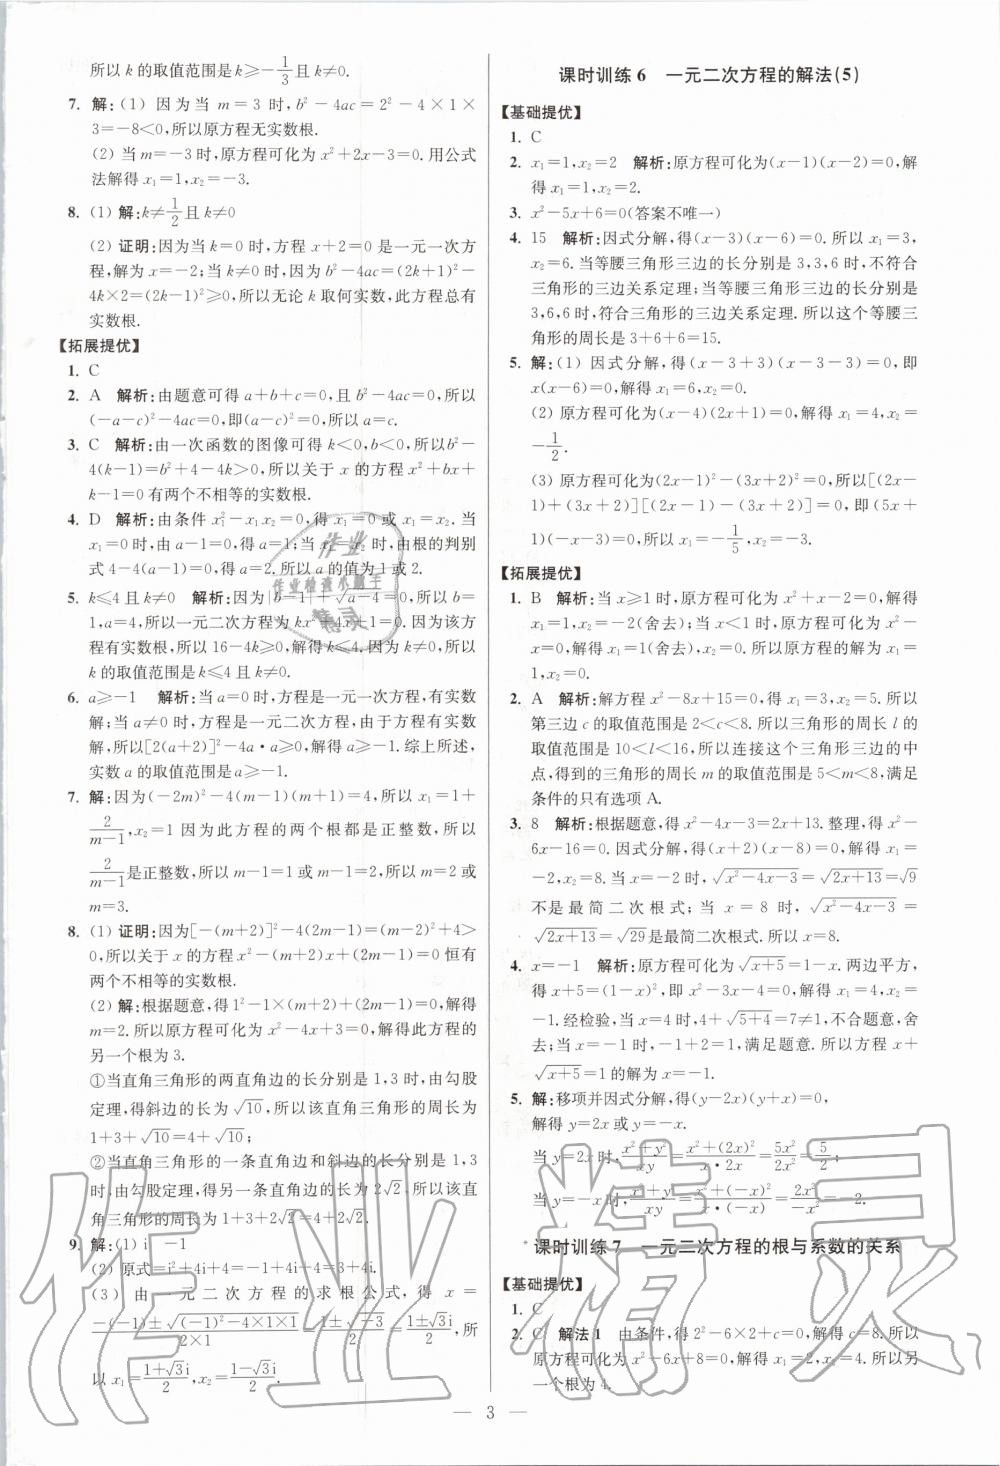 所以 k 的取值范围是k≥-1/3且k≠0.
7. 解:(1) 因为当 m=3 时,b²-4ac=2²-4×1×
3=-8<0,所以原方程无实数根.
(2) 当m=-3时,原方程可化为 x²+2x-3=0.用公式
法解得 x₁=1,x₂=-3.
8. (1) 解:k≠1/2且k≠0
(2) 证明:因为当 k=0 时,方程 x+2=0 是一元一次方
程,解为 x=-2;当 k≠0 时,因为 b²-4ac=(2k+1)²-
4k×2=(2k-1)²≥0,所以无论 k 取何实数,此方程总有
实数根.
【拓展提优】
1. C
2. A 解析:由题意可得 a+b+c=0,且 b²-4ac=0,所以
(-a-c)²-4ac=0,即(a-c)²=0,所以 a=c.
3. C 解析:由一次函数的图像可得 k<0,b<0,所以b²-
4(k-1)=b²+4-4k>0,所以关于 x 的方程 x²+bx+
k-1=0 有两个不相等的实数根.
4. D 解析:由条件 x₁²-x₁x₂=0,得 x₁=0 或 x₁=x₂.当
x₁=0时,由 a-1=0,得 a=1;当 x₁=x₂ 时,由根的判别
式 4-4(a-1)=0,得 a=2.所以 a 的值为 1 或 2.
5. k≤4 且 k≠0 解析:因为|b-1|+√(a-4)=0,所以 b=
1,a=4,所以一元二次方程为 kx²+4x+1=0.因为该方
程有实数根,所以 16-4k≥0,解得 k≤4.因为 k≠0,所
以 k 的取值范围是 k≤4 且 k≠0.
6. a≥-1 解析:当 a=0 时,方程是一元一次方程,有实数
解;当 a≠0 时,方程是一元二次方程,由于方程有实数
解,所以[2(a+2)]²-4a·a≥0,解得 a≥-1.综上所述,
实数 a 的取值范围是 a≥-1.
7. 解:因为(-2m)²-4(m-1)(m+1)=4,所以 x₁=1+
2/(m-1),x₂=1 因为此方程的两个根都是正整数,所以
2/(m-1)是正整数,所以 m-1=1 或 m-1=2,所以 m=2 或
m=3.
8. (1) 证明:因为[-(m+2)]²-4(2m-1)=(m-2)²+4>
0,所以关于 x 的方程 x²-(m+2)x+(2m-1)=0 恒有
两个不相等的实数根.
(2) 解:根据题意,得 1²-1×(m+2)+(2m-1)=0,解得
m=2.所以原方程可化为 x²-4x+3=0,解得此方程的
另一个根为 3.
①当直角三角形的两直角边的长分别是 1,3 时,由勾股
定理,得斜边的长为 √10,所以该直角三角形的周长为
1+3+√10=4+√10;
②当直角三角形的一条直角边和斜边的长分别是 1,3
时,由勾股定理,得另一条直角边的长为 2√2,所以该直
角三角形的周长为 1+3+2√2=4+2√2.
9. 解:(1)i -1
(2) 原式=i²+4i+4=-1+4i+4=3+4i.
(3) 由一元二次方程的求根公式,得 x=
(-(-1)±√((-1)²-4×1×1))/(2×1)=(1±√-3)/2=(1±√3i)/2,所
以 x₁=(1+√3i)/2,x₂=(1-√3i)/2.
课时训练 6 一元二次方程的解法(5)
【基础提优】
1. C
2. x₁=1,x₂=2 解析:原方程可化为(x-1)(x-2)=0,解
得 x₁=1,x₂=2.
3. x²-5x+6=0(答案不唯一)
4. 15 解析:因式分解,得(x-3)(x-6)=0.所以 x₁=3,
x₂=6.当等腰三角形三边的长分别是 3,3,6 时,不符合
三角形的三边关系定理;当等腰三角形三边的长分别是
3,6,6 时,符合三角形的三边关系定理.所以这个等腰三
角形的周长是 3+6+6=15.
5. 解:(1) 因式分解,得(x-3+3)(x-3-3)=0,即
x(x-6)=0,解得 x₁=6,x₂=0.
(2) 原方程可化为(x-4)(2x+1)=0,解得 x₁=4,x₂=
-1/2.
(3) 原方程可化为(2x-1)²-(3x+2)²=0,所以[(2x-
1)+(3x+2)][(2x-1)-(3x+2)]=0,即(5x+
1)(-x-3)=0,所以 x₁=-1/5,x₂=-3.
【拓展提优】
1. B 解析:当 x≥1 时,原方程可化为 x²+x-2=0,解得
x₁=1,x₂=-2(舍去);当 x<1 时,原方程可化为 x²-
x=0,解得 x₁=1(舍去),x₂=0.所以原方程的解为 x₁=
1,x₂=0.
2. A 解析:解方程 x²-8x+15=0,得 x₁=3,x₂=5.所以
第三边 c 的取值范围是 2<c<8.所以三角形的周长 l 的
取值范围是 10<l<16,所以连接这个三角形三边的中
点,得到的三角形的周长 m 的取值范围是 5<m<8,满足
条件的只有选项 A.
3. 8 解析:根据题意,得 x²-4x-3=2x+13.整理,得 x²-
6x-16=0.因式分解,得(x+2)(x-8)=0,解得 x₁=
-2,x₂=8.当 x=-2 时,√(x²-4x-3)=√(2x+13)=√9
不是最简二次根式;当 x=8 时,√(x²-4x-3)=
√(2x+13)=√29是最简二次根式.所以 x=8.
4. x=-1 解析:原方程可化为√(x+5)=1-x.两边平方,
得 x+5=(1-x)²,即 x²-3x-4=0,解得 x₁=4,x₂=
-1.经检验,当 x=4 时,4+√(5+4)=7≠1,不合题意,舍
去;当 x=-1 时,-1+√(-1+5)=1,满足题意.所以方程 x+
√(x+5)=1 的解为 x=-1.
5. 解:移项并因式分解,得(y-2x)(y+x)=0,
解得 y=2x 或 y=-x.
当 y=2x 时,(x²+y²)/(xy)=(x²+(2x)²)/(x·2x)=5x²/2x²=5/2;
当 y=-x 时,(x²+y²)/(xy)=(x²+(-x)²)/(x·(-x))=2x²/-x²=-2.
课时训练 7 一元二次方程的根与系数的关系
【基础提优】
1. C
2. C 解法 1 由条件,得 2²-6×2+c=0,解得 c=8.所以
原方程可化为 x²-6x+8=0,解得 x₁=2,x₂=4.所以另
一个根为 4.
— 3 —
作业精灵